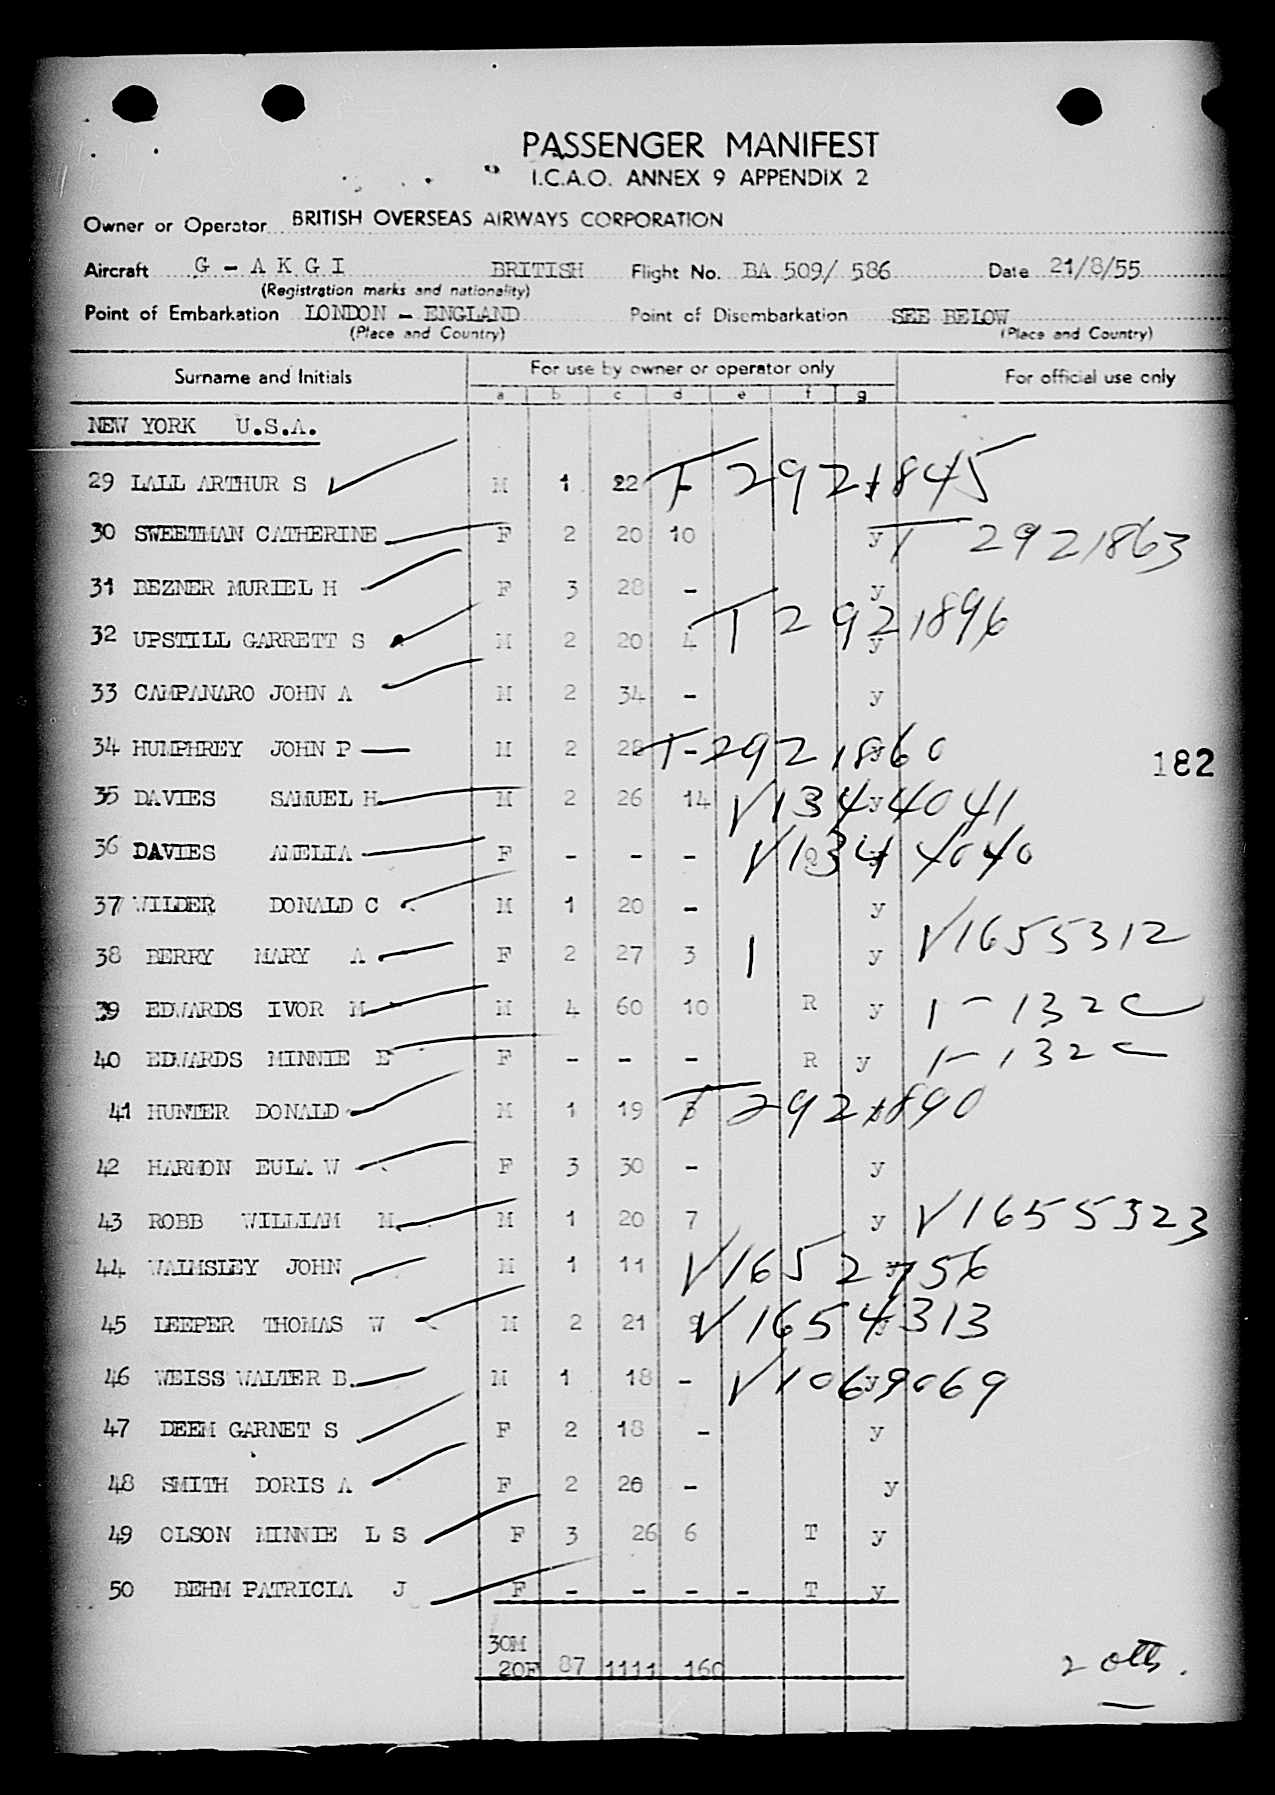 PASSENGER MANIFEST
I.C.A.O. ANNEX 9 APPENDIX 2
Owner or Operator BRITISH OVERSEAS AIRWAYS CORPORATION
Aircraft G - A K G I BRITISH Flight No. BA 509/ 586 Date 21/8/55
(Registration marks and nationality)
Point of Embarkation LONDON - ENGLAND Point of Disembarkation SEE BELOW
(Place and Country) (Place and Country)
Surname and Initials For use by owner or operator only For official use only
a b c d e f g
NEW YORK U.S.A.
29 LALL ARTHUR S M 1 22 T 2921845
30 SWEETMAN CATHERINE F 2 20 10 y T 2921863
31 BEZNER MURIEL H F 3 28 - y
32 UPSTILL GARRETT S M 2 20 4 y T 2921896
33 CAMPANARO JOHN A M 2 34 - y
34 HUMPHREY JOHN P M 2 28 - y T 2921860
182
35 DAVIES SAMUEL H M 2 26 14 y V1344041
36 DAVIES AMELIA F - - - V1344040
37 WILDER DONALD C M 1 20 - y
38 BERRY MARY A F 2 27 3 1 y V1655312
39 EDWARDS IVOR M M 4 60 10 R y 1-132C
40 EDWARDS MINNIE E F - - - R y 1-132C
41 HUNTER DONALD M 1 19 3 T 2921890
42 HARMON EULA W F 3 30 - y
43 ROBB WILLIAM M M 1 20 7 y V1655323
44 WALMSLEY JOHN M 1 11 y V1652756
45 LEEPER THOMAS W M 2 21 9 y V1654313
46 WEISS WALTER B. M 1 18 - y V1069069
47 DEEM GARNET S F 2 18 - y
48 SMITH DORIS A F 2 26 - y
49 OLSON MINNIE L S F 3 26 6 T y
50 BEHM PATRICIA J F - - - - T y
30M
20F 87 1111 160
2 oth.